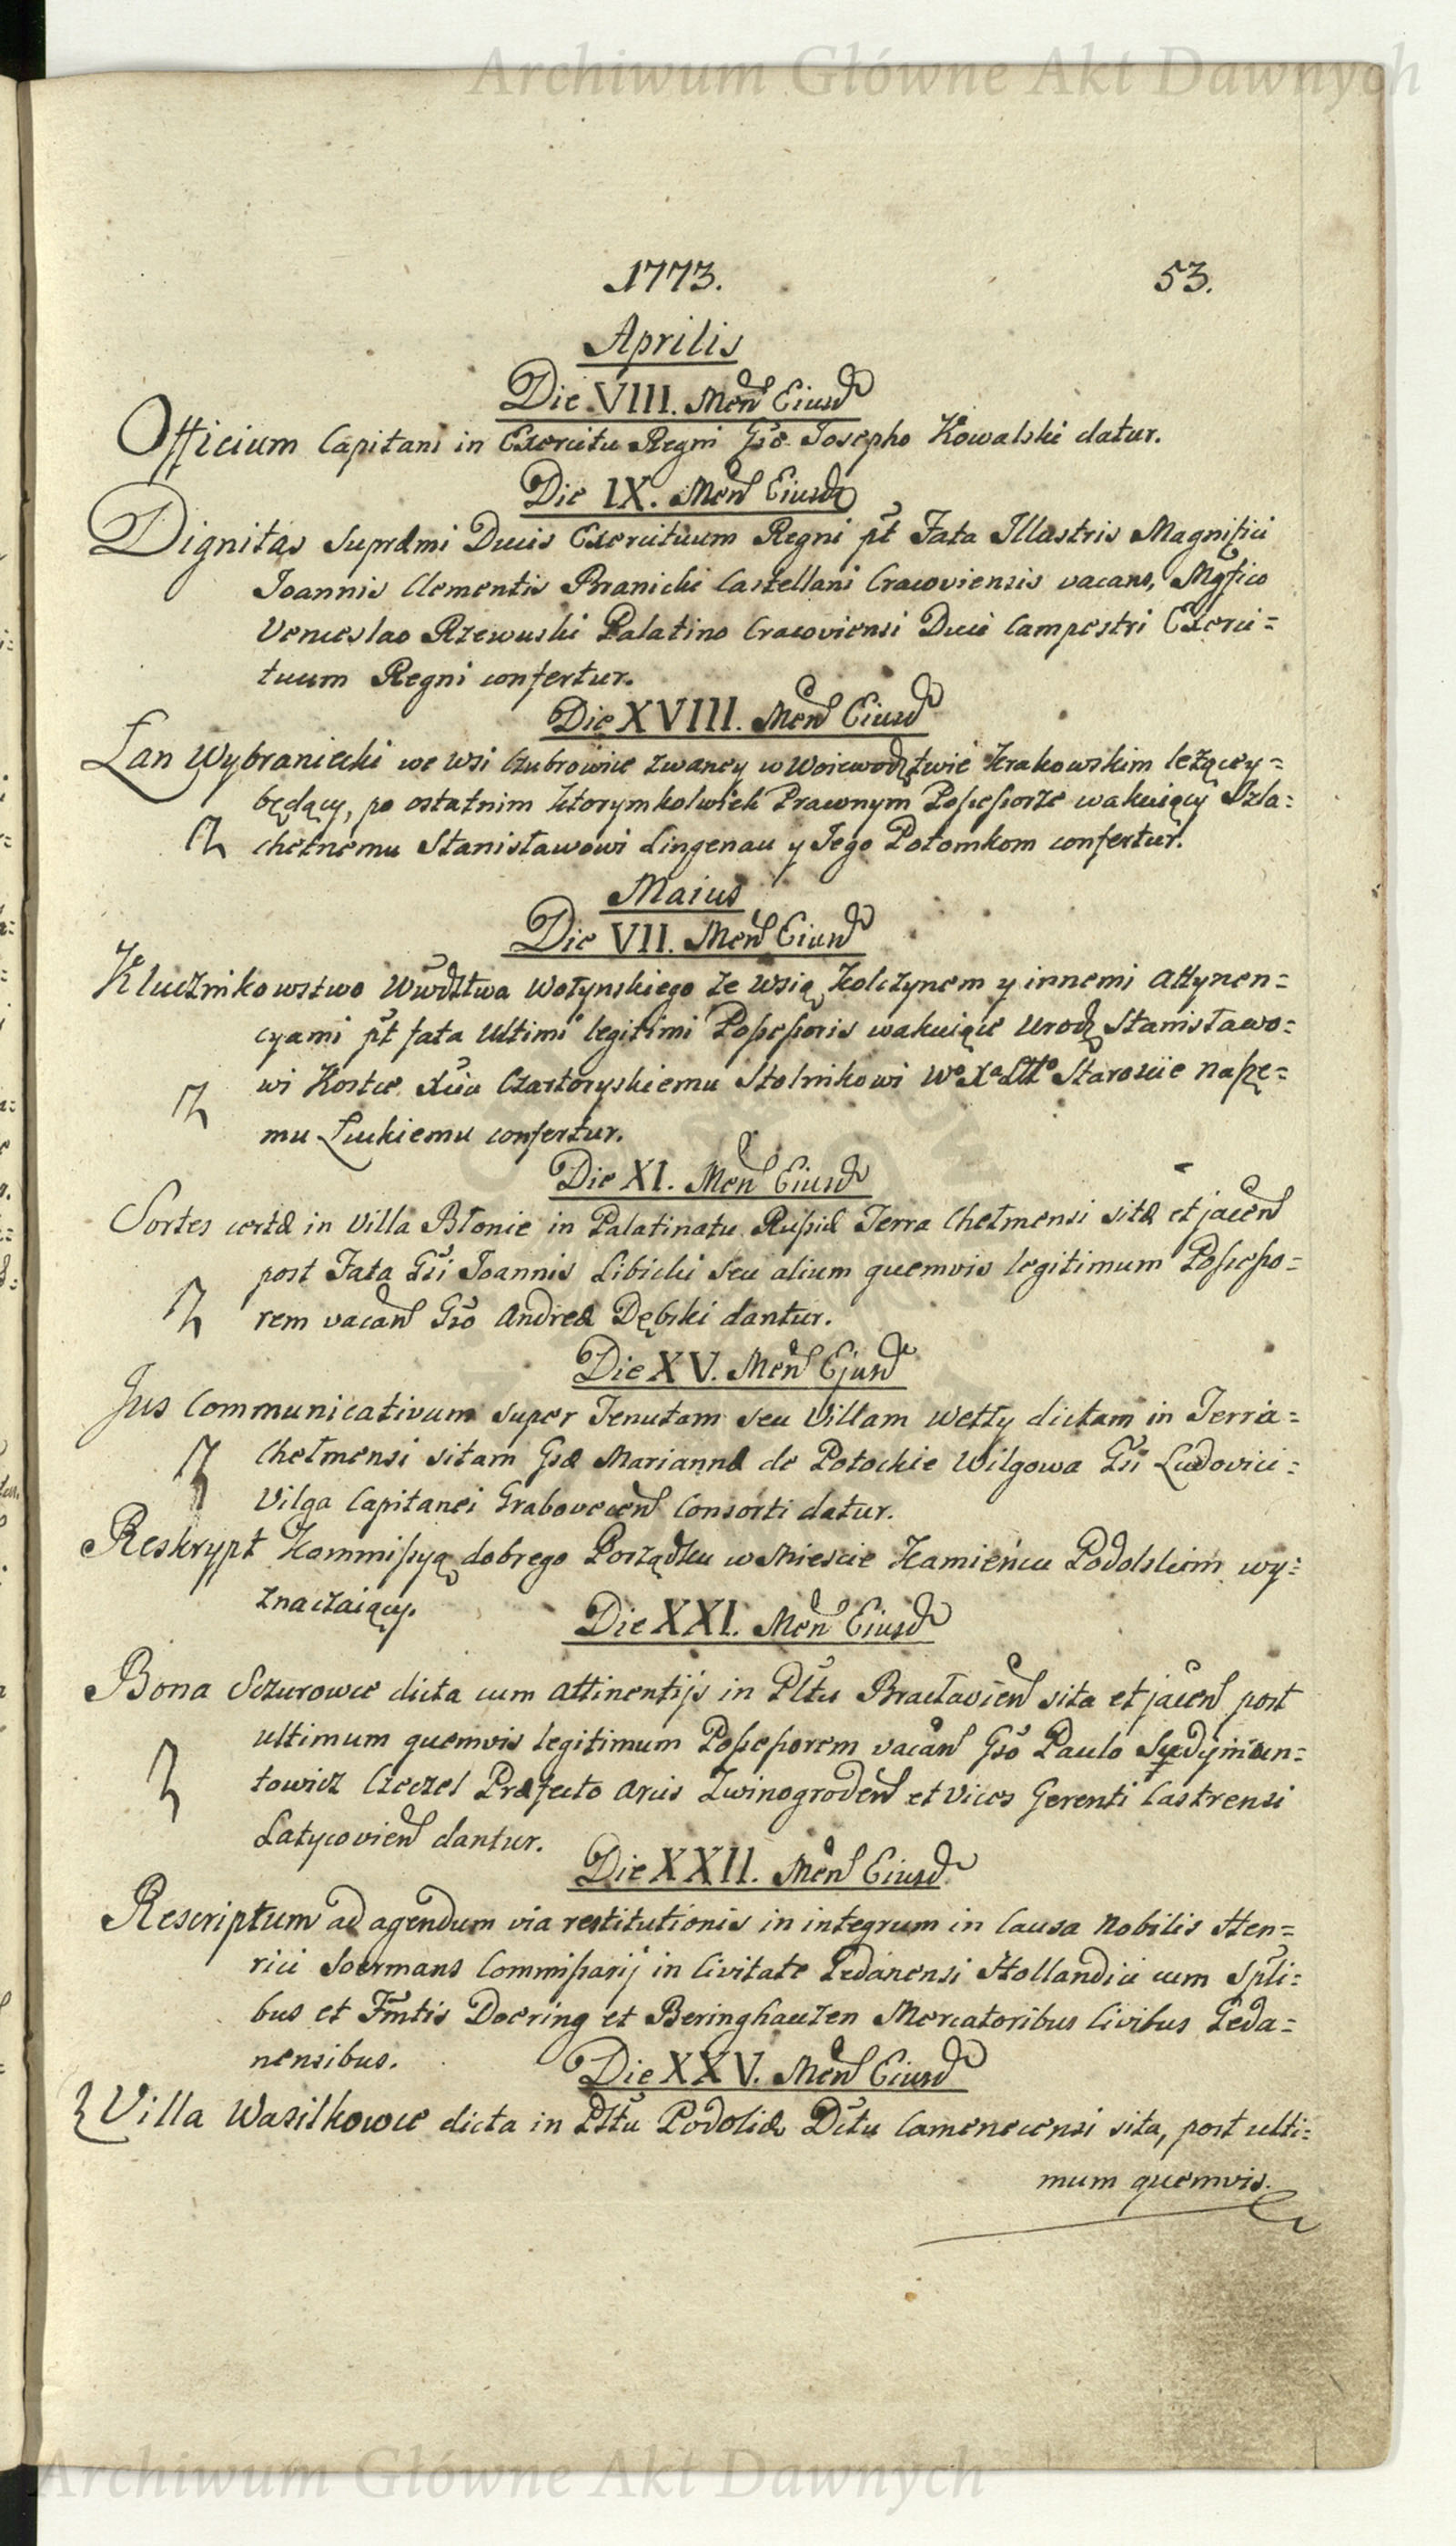 Archiwum Główne Akt Dawnych
1773. 53.
Aprilis
Die VIII. Men Eiusd
Officium Capitani in Exercitu Regni Gso Josepho Kowalski datur.
Die IX. Men Eiusd
Dignitas Supræmi Ducis Exercituum Regni pt Fata Illustris Magnifici
Joannis Clementis Branicki Castellani Cracoviensis vacans, Mgfico
Venceslao Rzewuski Palatino Cracoviensi Duci Campestri Exerci=
tuum Regni confertur.
Die XVIII. Men Eiusd
Łan Wybraniecki we wsi Czubrowice zwaney w Woiewodztwie Krakowskim leżącey=
będący, po ostatnim ktorymkolwiek Prawnym Possessorze wakuiący Szla=
chetnemu Stanisławowi Lingenau y Jego Potomkom confertur.
Maius
Die VII. Men Eiusd
Klucznikowstwo Wwdztwa Wołynskiego ze wsią Kolczynem y innemi Attynen=
cyami pt fata ultimi legitimi Possessoris wakuiące Urodz Stanisławo=
wi Kostce Xciu Czartoryskiemu Stolnikowi Wo Xa Ltto Staroscie naszę=
mu Łuckiemu confertur.
Die XI. Men Eiusd
Sortes certæ in Villa Błonie in Palatinatu Russiæ Terra Chełmensi sitæ et jacen
post Fata Gsi Joannis Libicki seu alium quemvis legitimum Possesso=
rem vacan Gso Andreæ Dębski dantur.
Die XV. Men Ejusd
Jus Communicativum super Tenutam seu Villam Wetły dictam in Terria=
Chełmensi sitam Gsæ Mariannæ de Potockie Wilgowa Gsi Ludovici=
Vilga Capitanei Grabovecen Consorti datur.
Reskrypt Kommissyą dobrego Porządku w Mieście Kamieńcu Podolskim wy=
znaczaiący.
Die XXI. Men Eiusd
Bona Sczurowce dicta cum attinentijs in Pltu Bracłavien sita et jacen post
ultimum quemvis legitimum Possessorem vacan Gso Paulo
towicz Czeczel Præfecto Arcis Zwinogroden et Vices Gerenti Castrensi
Latycovien dantur.
Die XXII. Men Eiusd
Rescriptum ad agendum via restitutionis in integrum in Causa Nobilis Hen=
rici Soermans Commissarij in Civitate Gedanensi Hollandici cum Spli=
bus et Fmtis Doering et Beringhauzen Mercatoribus Civibus Geda=
nensibus.
Die XXV. Men Eiusd
Villa Wasilkowce dicta in Pltu Podoliæ Dctu Camenecensi sita, post ulti=
mum quemvis.
Archiwum Główne Akt Dawnych